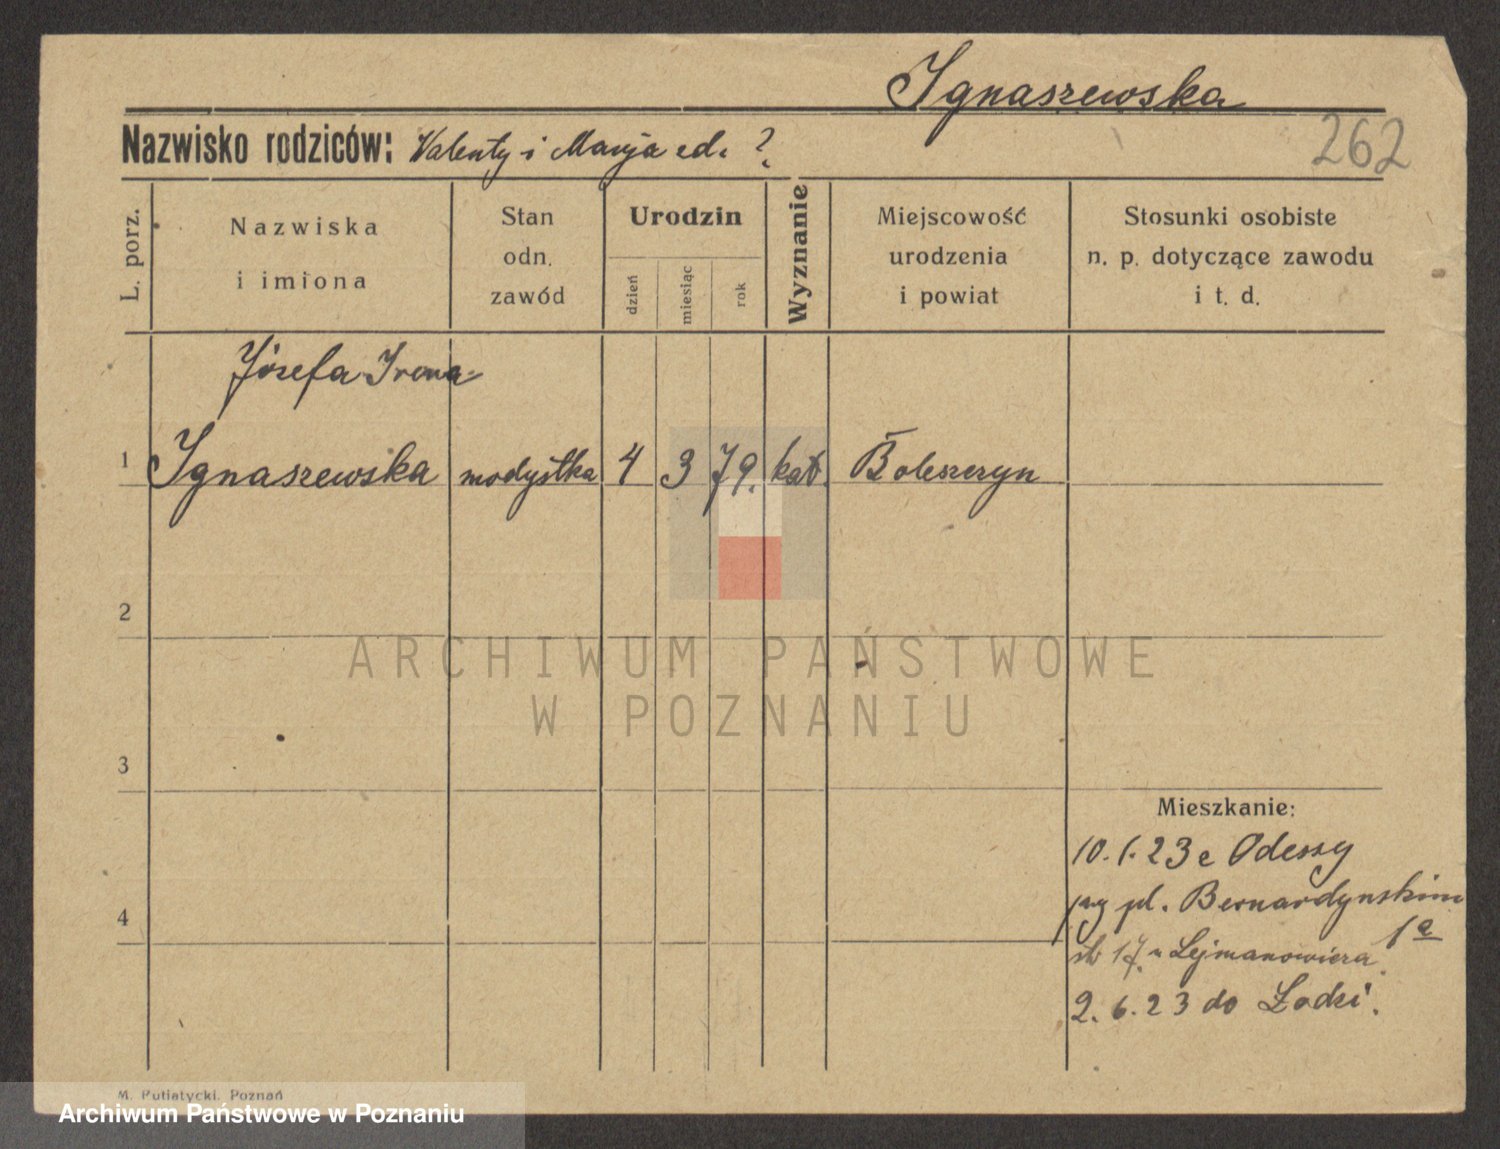 Ignaszewska
262
Nazwisko rodziców: Valenty i Maryja
L. porz.
Nazwiska
i imiona
Stan
odn.
zawód
Urodzin
dzień
miesiąc
rok
Wyznanie
Miejscowość
urodzenia
i powiat
Stosunki osobiste
n. p. dotyczące zawodu
i t. d.
Józefa Irena
1 Ignaszewska modystka 4 3 79. kat. Boleszczyn
2
ARCHIWUM PAŃSTWOWE
W POZNANIU
3
Mieszkanie:
10.1.23 z Odessy
przy pl. Bernardynskim
1a
17 u Lejmanowicza
4
2.6.23 do Łodzi.
M. Putiatycki, Poznań
Archiwum Państwowe w Poznaniu